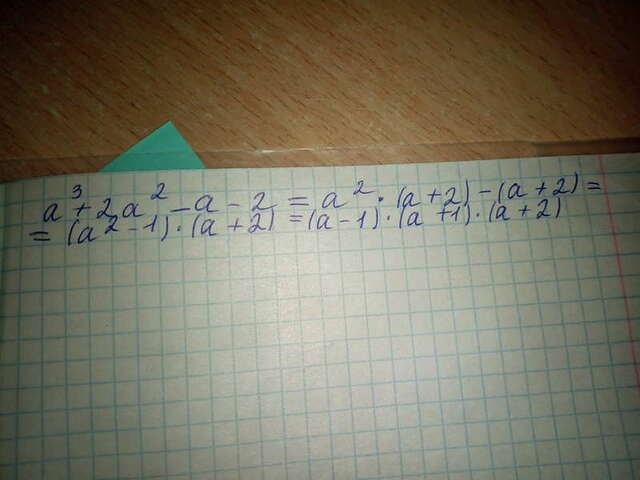 a³ + 2a² - a - 2 = a² · (a + 2) - (a + 2) =
= (a² - 1) · (a + 2) = (a - 1) · (a + 1) · (a + 2)